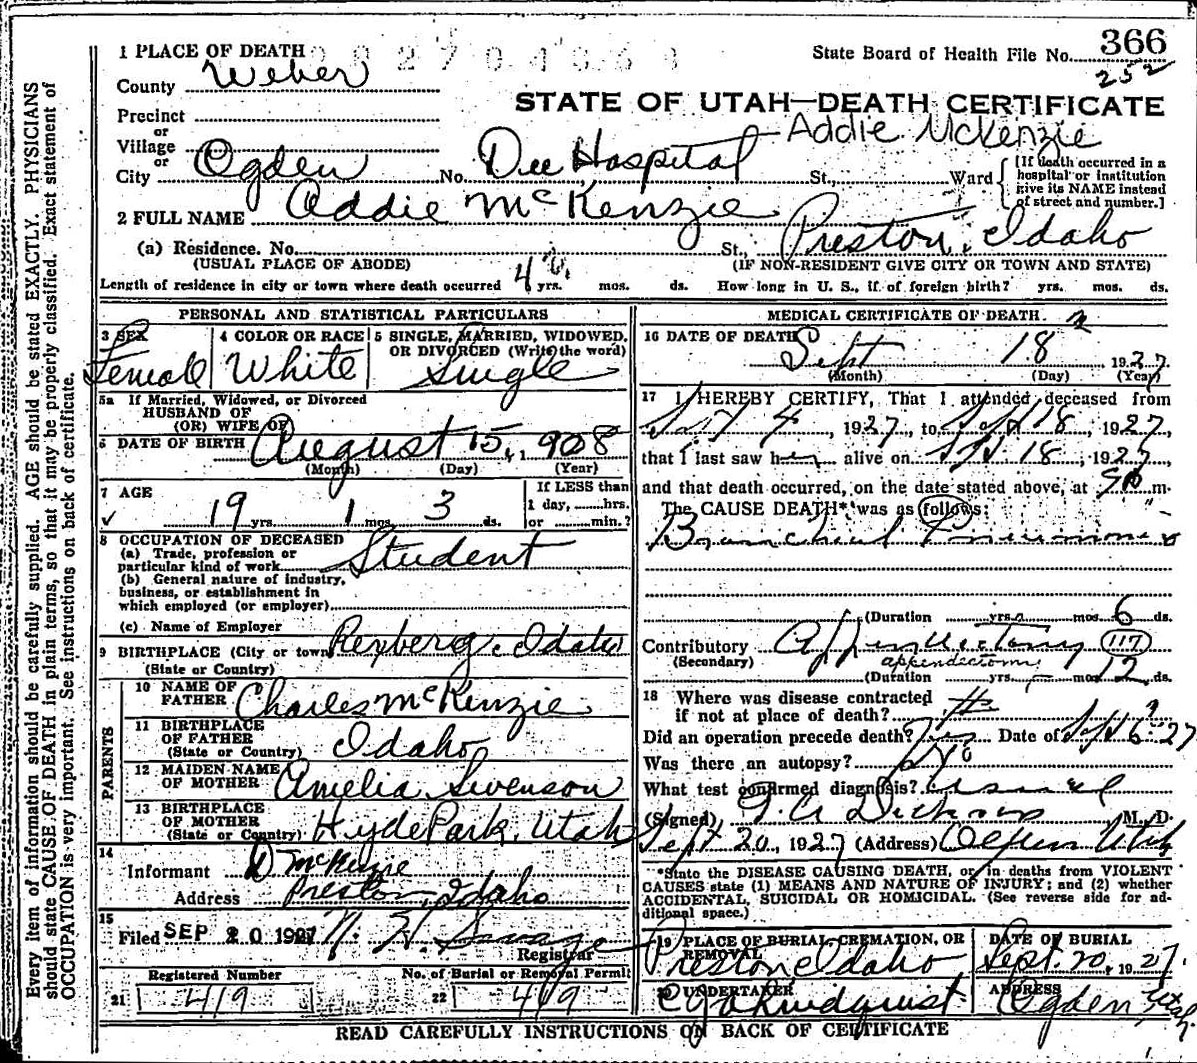 1 PLACE OF DEATH
State Board of Health File No. 366
252
County Weber
STATE OF UTAH—DEATH CERTIFICATE
Precinct
or
Village
Addie McKenzie
or
City Ogden No. Dee Hospital St., Ward
[If death occurred in a hospital or institution give its NAME instead of street and number.]
2 FULL NAME Addie McKenzie
(a) Residence. No. St., Preston, Idaho
(USUAL PLACE OF ABODE) (IF NON-RESIDENT GIVE CITY OR TOWN AND STATE)
Length of residence in city or town where death occurred yrs. mos. ds. How long in U. S., if of foreign birth? yrs. mos. ds.
PERSONAL AND STATISTICAL PARTICULARS
3 SEX Female
4 COLOR OR RACE White
5 SINGLE, MARRIED, WIDOWED, OR DIVORCED (Write the word) Single
5a If Married, Widowed, or Divorced
HUSBAND OF
(OR) WIFE OF
6 DATE OF BIRTH August 15, 1908
(Month) (Day) (Year)
7 AGE 19 yrs. 1 mos. 3 ds.
If LESS than
1 day, hrs.
or min.?
8 OCCUPATION OF DECEASED
(a) Trade, profession or
particular kind of work Student
(b) General nature of industry,
business, or establishment in
which employed (or employer)
(c) Name of Employer
9 BIRTHPLACE (City or town) Rexberg, Idaho
(State or Country)
PARENTS
10 NAME OF
FATHER Charles McKenzie
11 BIRTHPLACE
OF FATHER
(State or Country) Idaho
12 MAIDEN NAME
OF MOTHER Amelia Swenson
13 BIRTHPLACE
OF MOTHER
(State or Country) Hyde Park, Utah
14
Informant D McKenzie
Address Preston, Idaho
15
Filed SEP 20 1927 N. H. Savage
Registrar
Registered Number No. of Burial or Removal Permit
21 419 22 419
MEDICAL CERTIFICATE OF DEATH
16 DATE OF DEATH Sept 18 1927
(Month) (Day) (Year)
17 I HEREBY CERTIFY, That I attended deceased from
Sept 4, 1927, to Sept 18, 1927,
that I last saw her alive on Sept 18, 1927,
and that death occurred, on the date stated above, at m.
The CAUSE DEATH* was as follows:
Bronchial Pneumonia
(Duration yrs. mos. 6 ds.
Contributory Appendectomy 117
(Secondary) appendectomy
(Duration yrs. mos. 12 ds.
18 Where was disease contracted
if not at place of death?
Did an operation precede death? Yes Date of Sept 6 27
Was there an autopsy? No
What test confirmed diagnosis? usual
(Signed) M. D.
Sept 20, 1927 (Address) Ogden Utah
*State the DISEASE CAUSING DEATH, or, in deaths from VIOLENT
CAUSES state (1) MEANS AND NATURE OF INJURY; and (2) whether
ACCIDENTAL, SUICIDAL OR HOMICIDAL. (See reverse side for ad-
ditional space.)
19 PLACE OF BURIAL, CREMATION, OR
REMOVAL Preston Idaho
DATE OF BURIAL
Sept. 20, 1927.
20 UNDERTAKER
ADDRESS
Ogden Utah
READ CAREFULLY INSTRUCTIONS ON BACK OF CERTIFICATE
Every item of information should be carefully supplied. AGE should be stated EXACTLY. PHYSICIANS
should state CAUSE OF DEATH in plain terms, so that it may be properly classified. Exact statement of
OCCUPATION is very important. See instructions on back of certificate.